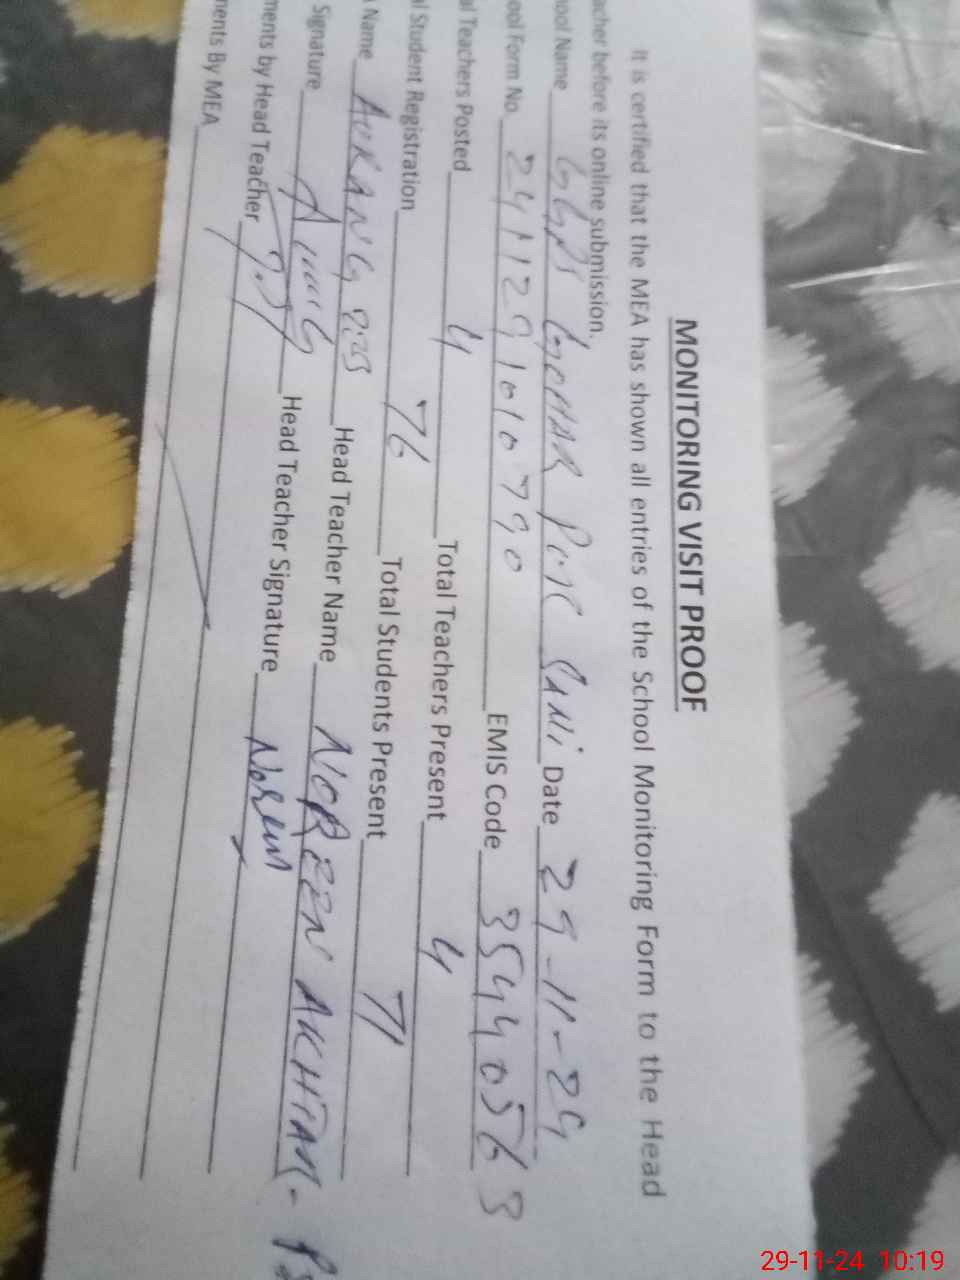 MONITORING VISIT PROOF
It is certified that the MEA has shown all entries of the School Monitoring Form to the Head
acher before its online submission.
hool Name GGPS GOHAR Date 29-11-24
ool Form No. 241129101010790 EMIS Code 35440563
al Teachers Posted 4 Total Teachers Present 4
al Student Registration 76 Total Students Present 71
A Name AURANG Head Teacher Name NOREEN AKHTAR
Signature Head Teacher Signature Noreen
ments by Head Teacher
ments By MEA
29-11-24 10:19